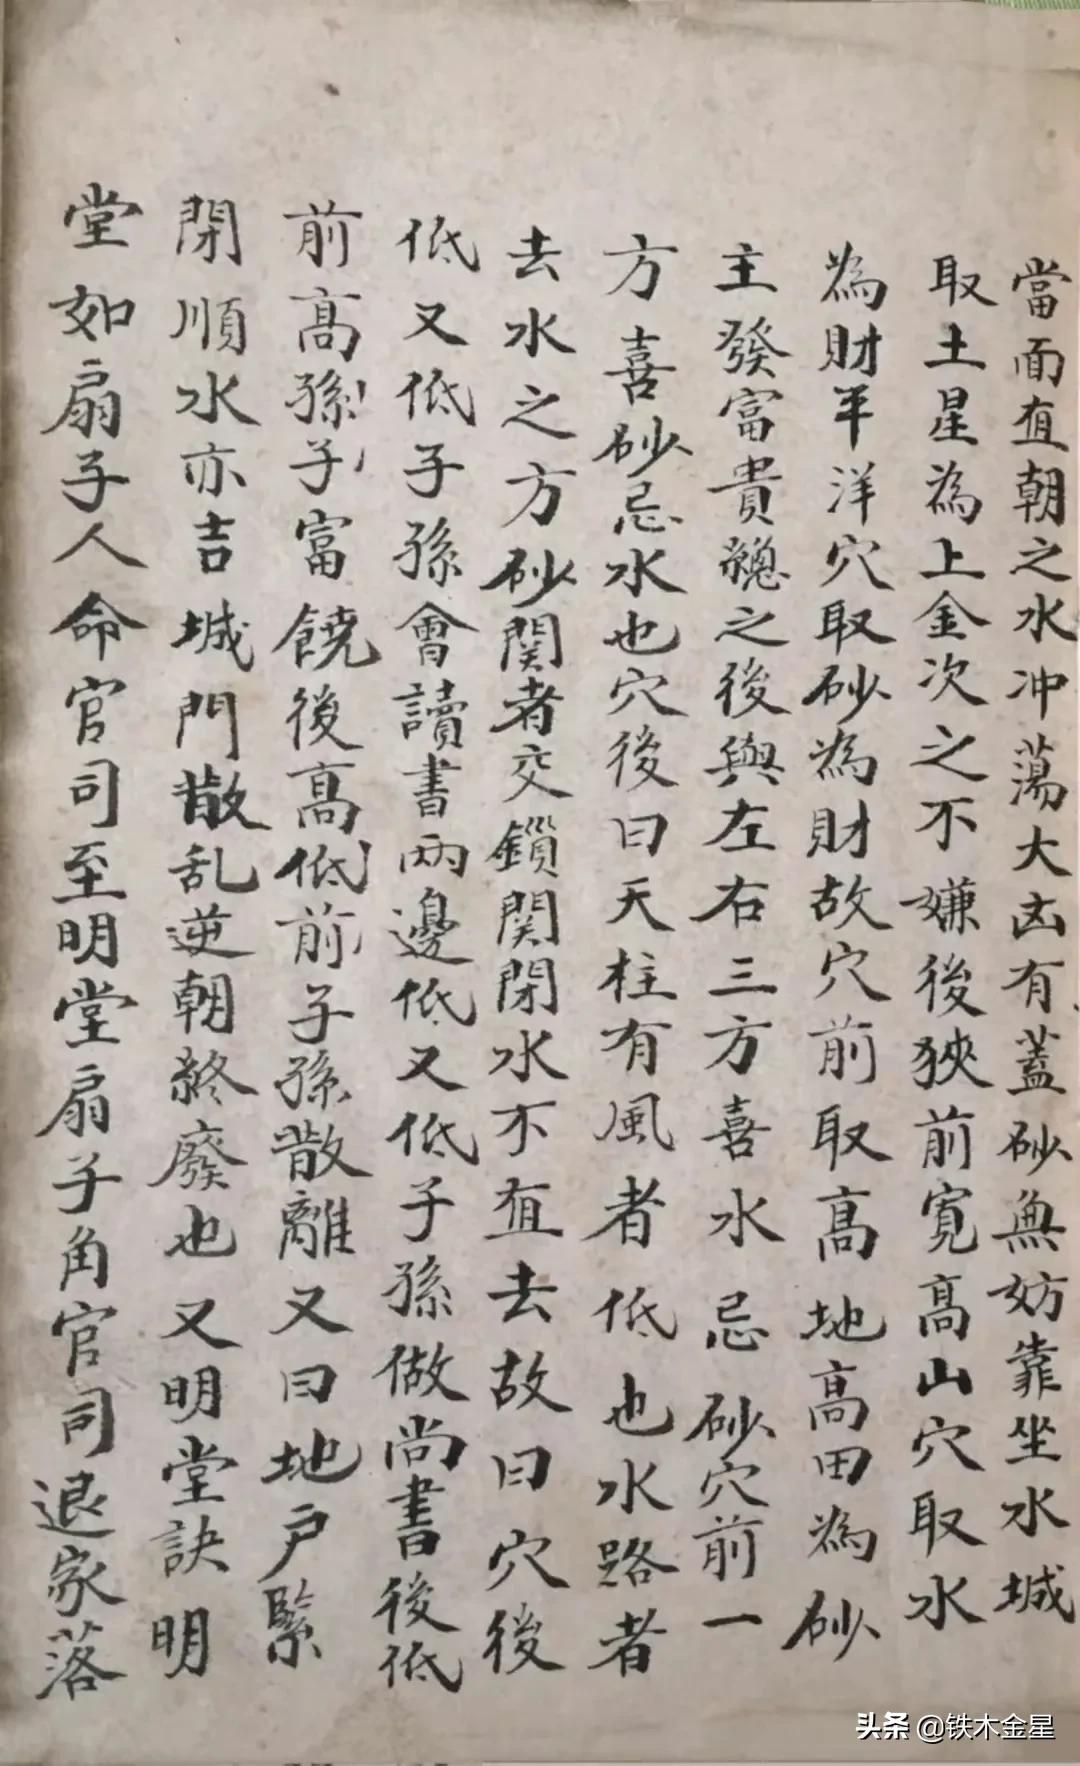 當面直朝之水冲蕩大凶有蓋砂無妨靠坐水城
取土星為上金次之不嫌後狹前寬高山穴取水
為財平洋穴取砂為財故穴前取高地高田為砂
主發富貴總之後與左右三方喜水忌砂穴前一
方喜砂忌水也穴後曰天柱有風者低也水路者
去水之方砂関者交鎖関閉水不直去故曰穴後
低又低子孫會讀書兩邊低又低子孫做尚書後低
前高孫子富饒後高低前子孫散離又曰地戶緊
閉順水亦吉城門散乱逆朝終廢也又明堂訣明
堂如扇子人命官司至明堂扇子角官司退家落
头条 @铁木金星